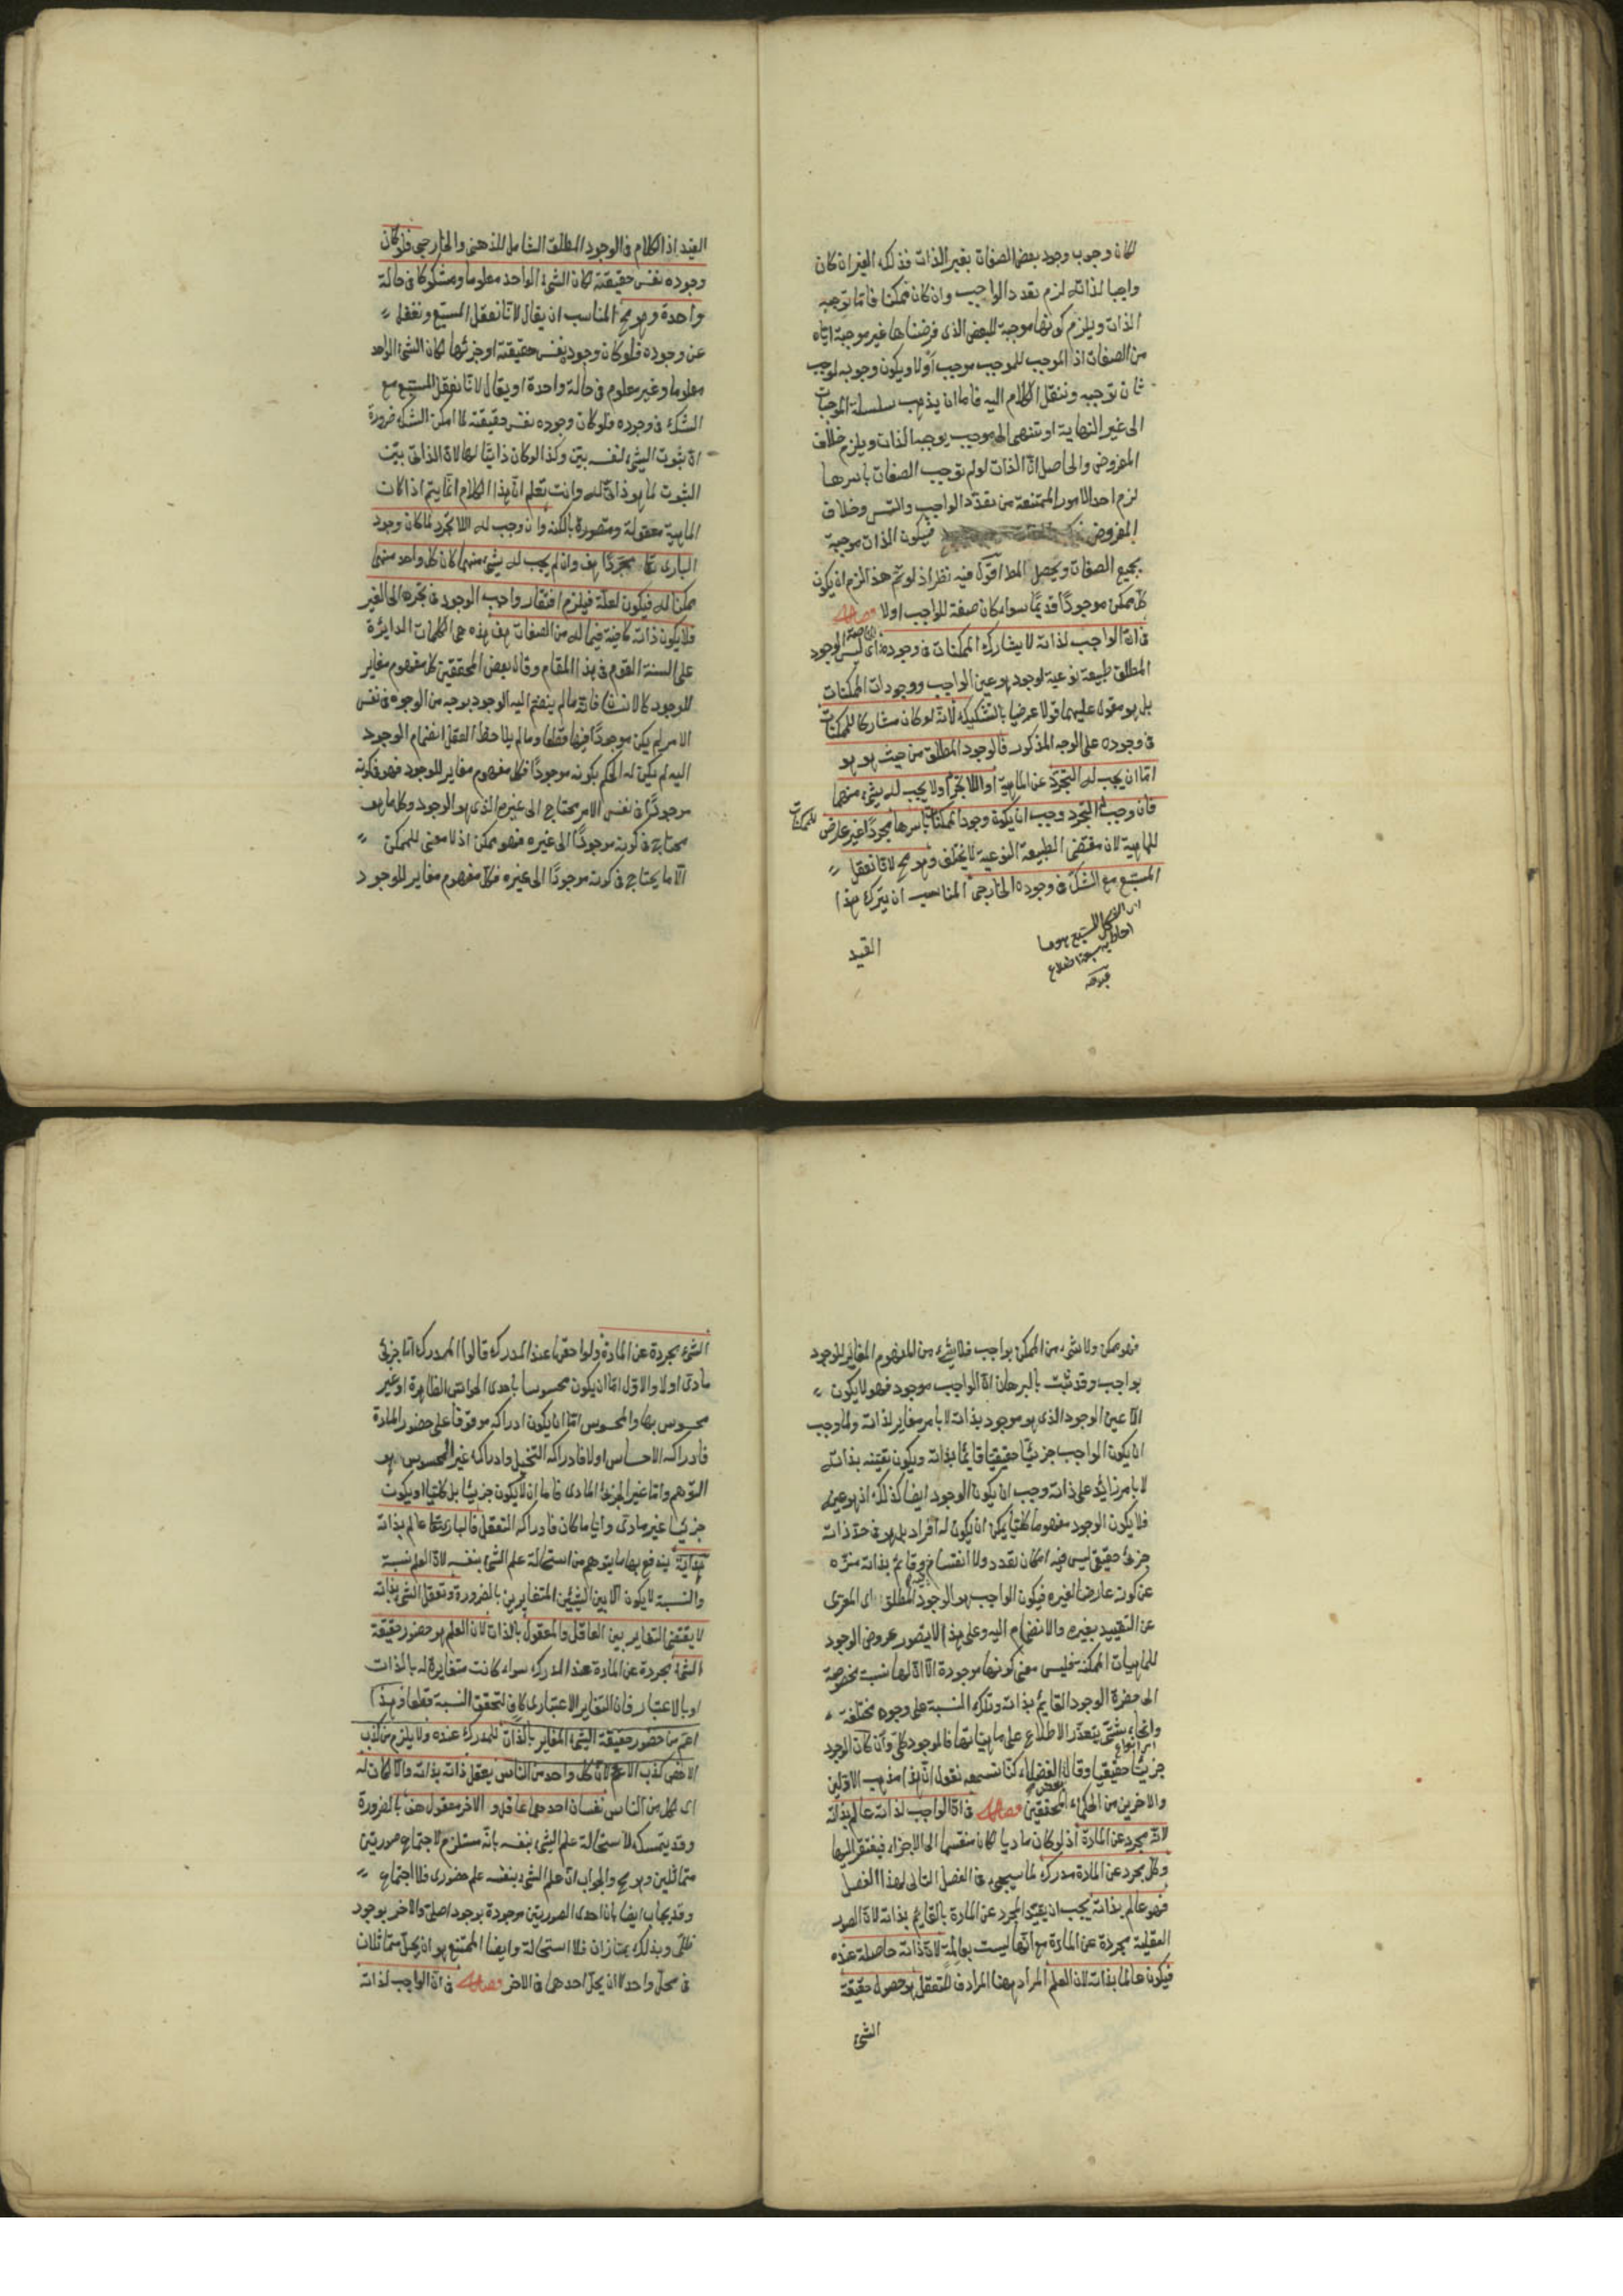 لكان وجوب وجود بعض الصفات بغير الذات فذلك الغير ان كان
واجبا لذاته لزم تعدد الواجب وان كان ممكنا فاما توجبه
الذات ويلزم كونها موجبة للبعض الذى فرضناها غير موجبة اياه
من الصفات اذ الموجب للموجب موجب اولا ويكون وجوبه لموجب
ثان توجبه وننقل الكلام اليه فاما ان يذهب سلسلة الموجبات
الى غير النهاية او تنتهى الى موجب يوجبه الذات ويلزم خلاف
المفروض والحاصل ان الذات لو لم توجب الصفات باسرها
لزم احد الامور الممتنعة من تعدد الواجب والتس وخلاف
المفروض فيكون الذات موجبة
بجميع الصفات ويحصل المط اقول فيه نظر اذ لو تم هذا لزم ان يكون
كل ممكن موجودا قديما سواء كان صفة للواجب اولا فصل
فى ان الواجب لذاته لا يشارك الممكنات فى وجوده اى ليس الوجود
المطلق طبيعة نوعية لوجود هو عين الواجب ووجودات الممكنات
بل هو مقول عليهما قولا عرضيا بالتشكيك لانه لو كان مشاركا للممكنات
فى وجوده على الوجه المذكور فالوجود المطلق من حيث هو هو
اما ان يجب له التجرد عن الماهية او اللاتجرد او لا يجب له شئ منهما
فان وجب له التجرد وجب ان يكون وجود الممكنات باسرها مجردا غير عارض
للممكنات
للماهية لان مقتضى الطبيعة النوعية لا يختلف وهو مح لانا نعقل
المسبع مع الشك فى وجوده الخارجى المناسب ان يترك هذا
اى الشكل المسبع هو ما
احاط به سبعة اضلاع
القيد
القيد اذ الكلام فى الوجود المطلق الشامل للذهنى والخارجى فلو كان
وجوده نفس حقيقته لكان الشئ الواحد معلوما ومشكوكا فى حالة
واحدة وهو مح المناسب ان يقال لانا نعقل المسبع ونغفل
عن وجوده فلو كان وجوده نفس حقيقته او جزئها لكان الشئ الواحد
معلوما وغير معلوم فى حالة واحدة او يقال لانا نعقل المسبع مع
الشك فى وجوده فلو كان وجوده نفس حقيقته لما امكن الشك ضرورة
ان ثبوت الشئ لنفسه بين وكذا لو كان ذاتيا لها لان الذاتى بين
الثبوت لما هو ذاتى له وانت تعلم ان هذا الكلام انما يتم اذا كانت
الماهية معقولة ومتصورة بالكنه وان وجب له اللاتجرد لما كان وجود
البارى تعا مجردا هف وان لم يجب له شئ منهما كان كل واحد منهما
ممكنا له فيكون لعلة فيلزم افتقار واجب الوجود فى تجرده الى الغير
فلا يكون ذاته كافية فيما له من الصفات هف هذه هى الكلمات الدائرة
على السنة القوم فى هذا المقام وقال بعض المحققين كل مفهوم مغاير
للوجود كالانسان فانه ما لم ينضم اليه الوجود بوجه من الوجوه فى نفس
الامر لم يكن موجودا فيها قطعا وما لم يلاحظ العقل انضمام الوجود
اليه لم يكن له الحكم بكونه موجودا فكل مفهوم مغاير للوجود فهو فى كونه
موجودا فى نفس الامر محتاج الى غيره الذى هو الوجود وكل ما هو
محتاج فى كونه موجودا الى غيره فهو ممكن اذ لا معنى للممكن
الا ما يحتاج فى كونه موجودا الى غيره فكل مفهوم مغاير للوجود
فهو ممكن ولا شئ من الممكن بواجب فلا شئ من المفهوم المغاير للوجود
بواجب وقد ثبت بالبرهان ان الواجب موجود فهو لا يكون
الا عين الوجود الذى هو موجود بذاته لا بامر مغاير لذاته ولما وجب
ان يكون الواجب جزئيا حقيقيا قائما بذاته ويكون تعينه بذاته
لا بامر زائد على ذاته وجب ان يكون الوجود ايضا كذلك اذ هو عينه
فلا يكون الوجود مفهوما كليا يمكن ان يكون له افراد بل هو فى حد ذاته
جزئى حقيقى ليس فيه امكان تعدد ولا انقسام وقائم بذاته منزه
عن كونه عارضا لغيره فيكون الواجب هو الوجود المطلق اى المعرى
عن التقييد بغيره والانضمام اليه وعلى هذا لا يتصور عروض الوجود
للماهيات الممكنة فليس معنى كونها موجودة الا ان لها نسبة مخصوصة
الى حضرة الوجود القائم بذاته وتلك النسبة على وجوه مختلفة
وانحاء شتى يتعذر الاطلاع على ماهياتها فالموجود كلى وان كان الوجود
اى انواع
جزئيا حقيقيا وقال بعض الفضلاء كنا نسمعه نقول ان هذا مذهب الاولين
والاخرين من الحكماء المحققين فصل فى ان الواجب لذاته عالم بذاته
لانه مجرد عن المادة اذ لو كان ماديا لكان منقسما الى الاجزاء فيفتقر اليها
وكل مجرد عن المادة مدرك لما سيجئ فى الفصل التالى لهذا الفصل
فهو عالم بذاته يجب ان يقيد المجرد عن المادة بالقايم بذاته لان الصور
العقلية مجردة عن المادة مع انها ليست بعالمة لان ذاته حاصلة عنده
فيكون عالما بذاته لان العلم المراد بهذا المرادف للتعقل هو حصول حقيقة
الشئ
الشئ مجردة عن المادة ولواحقها عند المدرك قالوا المدرك اما جزئى
مادى اولا والاول اما ان يكون محسوسا باحدى الحواس الظاهرة او غير
محسوس بها والمحسوس اما ان يكون ادراكه موقوفا على حضور المادة
فادراكه الاحساس اولا فادراكه التخيل وادراك غير المحسوس هو
التوهم واما غير الجزئى المادى فاما ان لا يكون جزئيا بل كليا او يكون
جزئيا غير مادى وايا ما كان فادراكه التعقل فالبارى تعا عالم بذاته
هداية يندفع بها ما يتوهم من استحالة علم الشئ بنفسه لان العلم نسبة
والنسبة لا يكون الا بين الشيئين المتغايرين بالضرورة وتعقل الشئ بذاته
لا يقتضى التغاير بين العاقل والمعقول بالذات لان العلم هو حضور حقيقة
الشئ مجردة عن المادة عند المدرك سواء كانت متغايرة له بالذات
او بالاعتبار فان التغاير الاعتبارى كاف لتحقق النسبة قطعا وهذا
اعم من حضور حقيقة الشئ المغاير بالذات للمدرك عنده ولا يلزم من كذب
الاخص كذب الاعم لان كل واحد من الناس يعقل ذاته بذاته والا لكان له
اى لكل من الناس نفسان احدهما عاقل والاخر معقول هف بالضرورة
وقد يتمسك لاستحالة علم الشئ بنفسه بانه مستلزم لاجتماع صورتين
متماثلين وهو مح والجواب ان علم الشئ بنفسه علم حضورى فلا اجتماع
وقد يجاب ايضا بان احدى الصورتين موجودة بوجود اصلى والاخر بوجود
ظلى وبذلك يمتازان فلا استحالة وايضا الممتنع هو ان يحل متماثلان
فى محل واحد لا ان يحل احدهما فى الاخر فصل فى ان الواجب لذاته